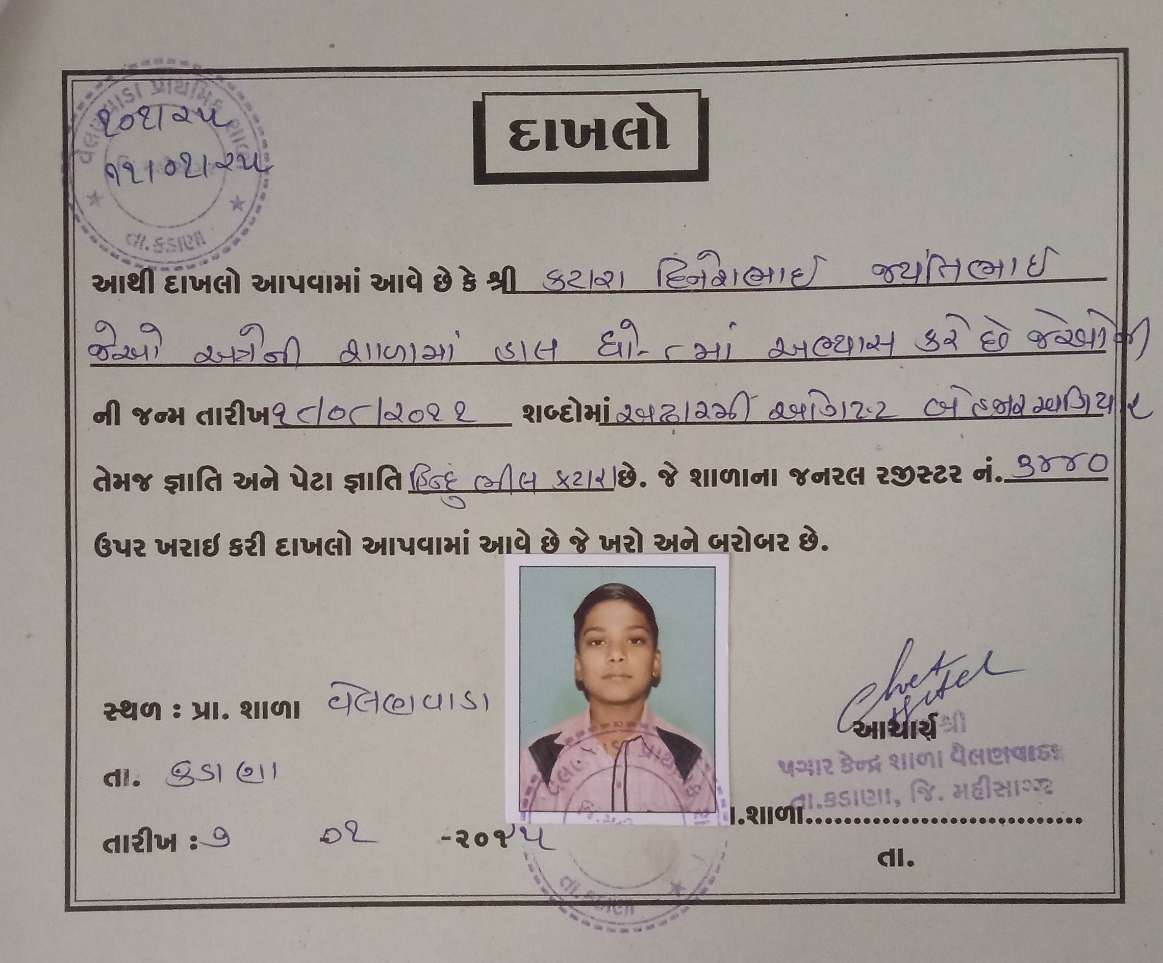 વેલણવાડા પ્રાથમિક શાળા
તા.કડાણા
દાખલો
આથી દાખલો આપવામાં આવે છે કે શ્રી કટારા દિનેશભાઈ જયંતિભાઈ
જેઓ અત્રેની શાળામાં હાલ ધો-૮માં અભ્યાસ કરે છે જેઓની
ની જન્મ તારીખ ૧૮/૦૮/૨૦૧૧ શબ્દોમાં અઢારમી ઓગષ્ટ બે હજાર અગિયાર
તેમજ જ્ઞાતિ અને પેટા જ્ઞાતિ હિન્દુ ભીલ કટારા છે. જે શાળાના જનરલ રજીસ્ટર નં.
ઉપર ખરાઇ કરી દાખલો આપવામાં આવે છે જે ખરો અને બરોબર છે.
સ્થળ : પ્રા. શાળા વેલણવાડા
આચાર્ય શ્રી
પગાર કેન્દ્ર શાળા વેલણવાડા
તા. કડાણા
તા.કડાણા, જિ. મહીસાગર
.શાળા..............................
તારીખ : ૭ ૦૧ -૨૦૨૫
તા.
તા.કડાણા